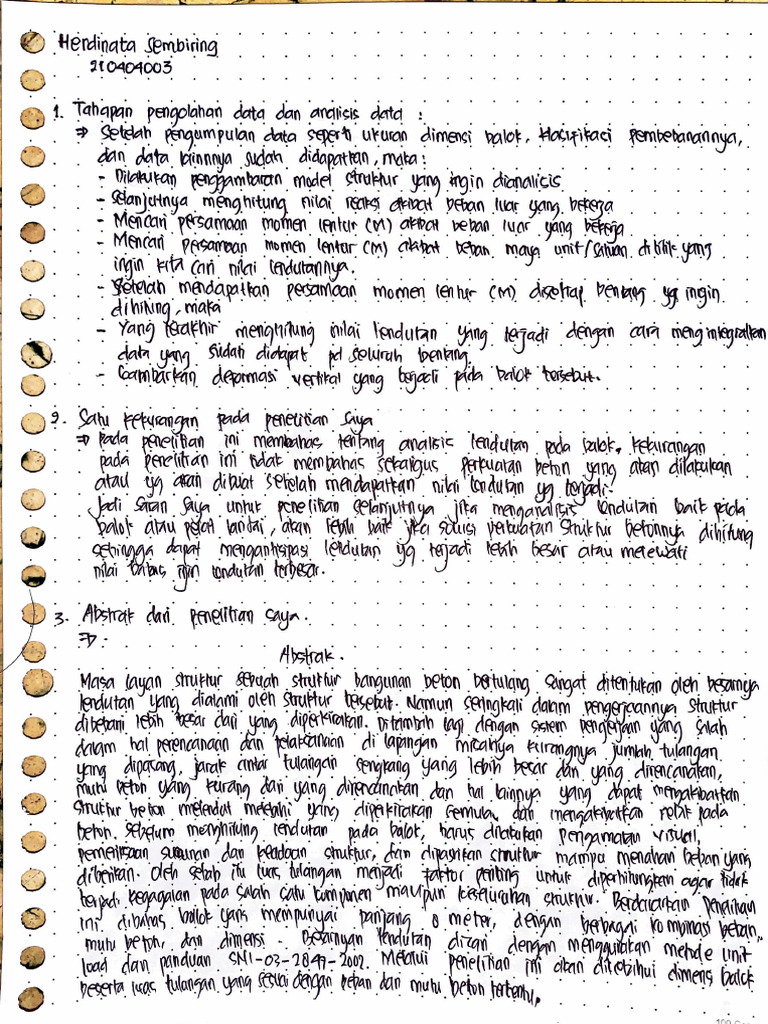 Herdinata Sembiring
210404003
1. Tahapan pengolahan data dan analisis data :
⇒ Setelah pengumpulan data seperti ukuran dimensi balok, klasifikasi pembebanannya,
dan data lainnnya sudah didapatkan, maka :
- Dilakukan penggambaran model struktur yang ingin dianalisis
- Selanjutnya menghitung nilai reaksi akibat beban luar yang bekerja
- Mencari persamaan momen lentur (M) akibat beban luar yang bekerja
- Mencari persamaan momen lentur (M) akibat beban maya unit/satuan di titik yang
ingin kita cari nilai lendutannya.
- Setelah mendapatkan persamaan momen lentur (M) disetiap bentang yg ingin
dihitung, maka
- Yang terakhir menghitung nilai lendutan yang terjadi dengan cara mengintegralkan
data yang sudah didapat pd seluruh bentang
- Gambarkan deformasi vertikal yang terjadi pada balok tersebut.
2. Satu kekurangan pada penelitian saya
⇒ Pada penelitian ini membahas tentang analisis lendutan pada balok, kekurangan
pada penelitian ini tidak membahas sekaligus perkuatan beton yang akan dilakukan
atau yg akan dibuat setelah mendapatkan nilai lendutan yg terjadi.
Jadi saran saya untuk penelitian selanjutnya jika menganalisis lendutan baik pada
balok atau pelat lantai, akan lebih baik jika solusi perkuatan struktur betonnya dihitung
sehingga dapat mengantisipasi lendutan yg terjadi lebih besar atau melewati
nilai batas ijin lendutan terbesar.
3. Abstrak dari penelitian saya.
⇒.
Abstrak.
Masa layan struktur sebuah struktur bangunan beton bertulang sangat ditentukan oleh besarnya
lendutan yang dialami oleh struktur tersebut. Namun seringkali dalam pengerjaannya struktur
dibebani lebih besar dari yang diperkirakan. Ditambah lagi dengan sistem pengerjaan yang salah
dalam hal perencanaan dan pelaksanaan di lapangan misalnya kurangnya jumlah tulangan
yang dipasang, jarak antar tulangan sengkang yang lebih besar dari yang direncanakan,
mutu beton yang kurang dari yang direncanakan dan hal lainnya yang dapat mengakibatkan
struktur beton melendut melebihi yang diperkirakan semula, dan mengakibatkan retak pada
beton. Sebelum menghitung lendutan pada balok, harus dilakukan pengamatan visual,
pemeriksaan susunan dan keadaan struktur, dan dipastikan struktur mampu menahan beban yang
diberikan. Oleh sebab itu luas tulangan menjadi faktor penting untuk diperhitungkan agar tidak
terjadi kegagalan pada salah satu komponen maupun keseluruhan struktur. Berdasarkan penelitian
ini dibahas balok yang mempunyai panjang 8 meter, dengan berbagai kombinasi beban,
mutu beton, dan dimensi. Besarnya lendutan dicari dengan menggunakan metode unit
load dan panduan SNI-03-2847-2002. Melalui penelitian ini akan diketahui dimensi balok
beserta luas tulangan yang sesuai dengan beban dan mutu beton tertentu.